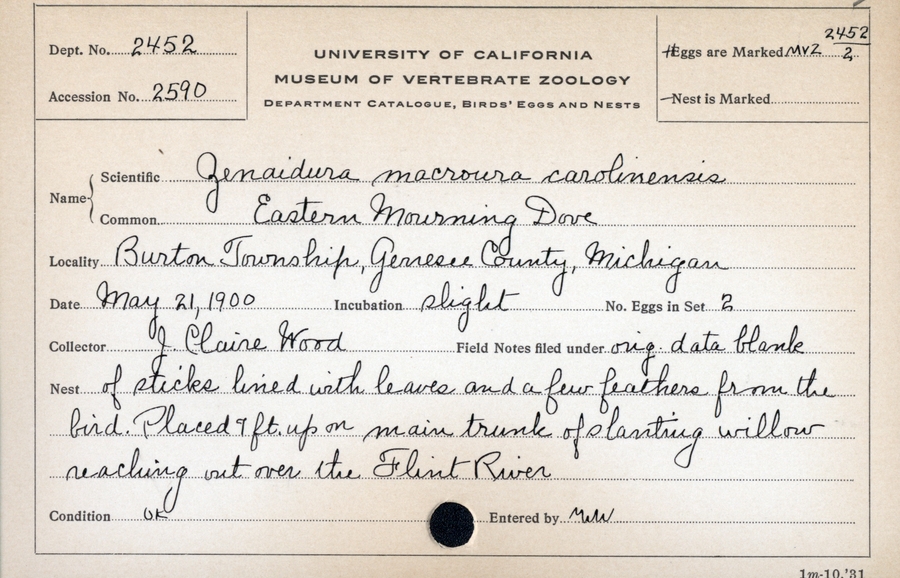 Dept. No. 2452
Accession No. 2590
UNIVERSITY OF CALIFORNIA
MUSEUM OF VERTEBRATE ZOOLOGY
DEPARTMENT CATALOGUE, BIRDS' EGGS AND NESTS
Eggs are Marked MVZ 2452/2
Nest is Marked
Name { Scientific Zenaidura macroura carolinensis
Common Eastern Mourning Dove
Locality Burton Township, Genesee County, Michigan
Date May 21, 1900 Incubation slight No. Eggs in Set 2
Collector J. Claire Wood Field Notes filed under orig. data blank
Nest of sticks lined with leaves and a few feathers from the
bird. Placed 9 ft. up on main trunk of slanting willow
reaching out over the Flint River
Condition OK Entered by
1m-10,'31